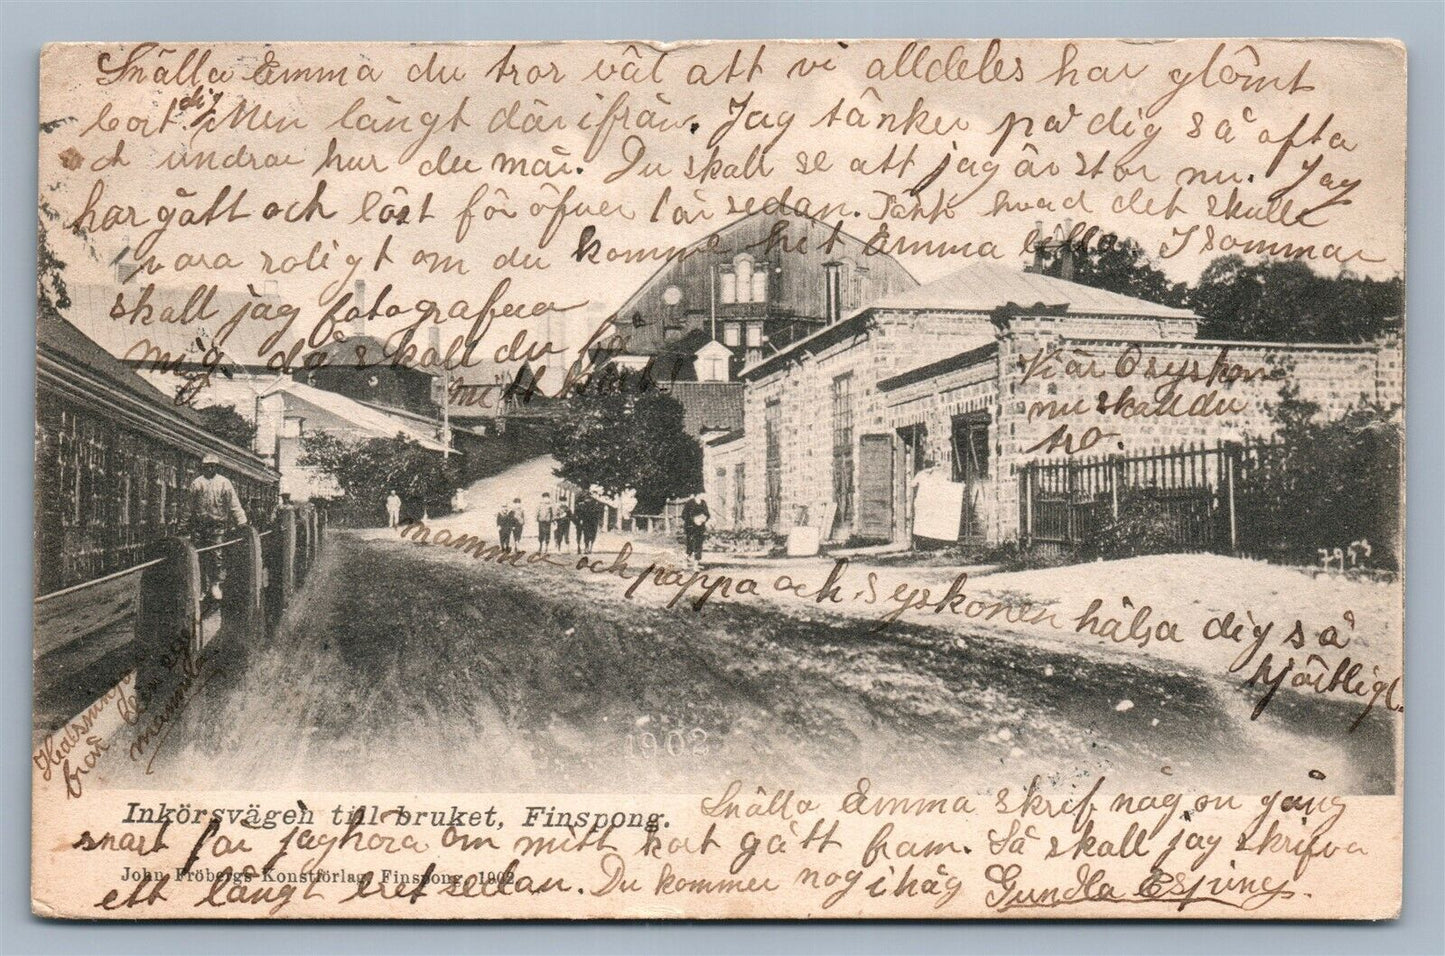 Snälla Emma du tror väl att vi alldeles har glömt
bort dig Men långt därifrån. Jag tänker på dig så ofta
och undrar hur du mår. Du skall se att jag är stor nu. Jag
har gått och läst för öfver 1 år sedan. Tänk hvad det skulle
vara roligt om du komme hit Emma lilla I sommar
skall jag fotografera
mig då skall du få
mitt kort!
Kär Osyskon
nu skall du
tro.
mamma och pappa och Syskonen hälsa dig så
hjärtligt.
Helsningar
från
mamma
1902
Inkörsvägen till bruket, Finspong.
John Fröbergs Konstförlag, Finspong, 1902
Snälla Emma skref någon gång
snart får jag höra om mitt kort gått fram. Så skall jag skrifva
ett långt bref sedan. Du kommer nog ihåg Gundla Esping.